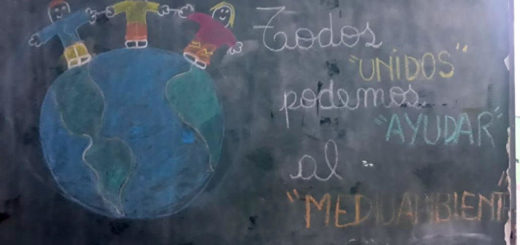 Todos
"UNIDOS"
podemos
"AYUDAR"
al
"MEDIOAMBIENT